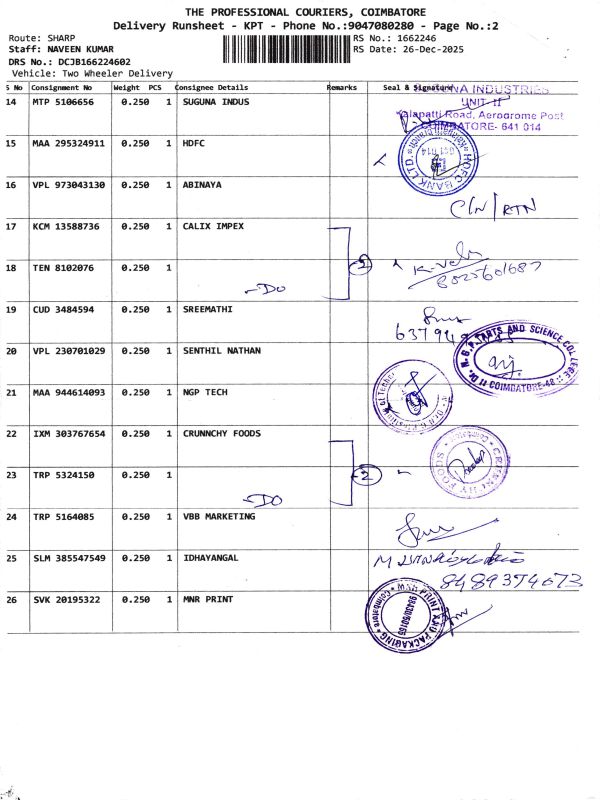 THE PROFESSIONAL COURIERS, COIMBATORE
Delivery Runsheet - KPT - Phone No.:9047080280 - Page No.:2
Route: SHARP
Staff: NAVEEN KUMAR
DRS No.: DCJB166224602
Vehicle: Two Wheeler Delivery
RS No.: 1662246
RS Date: 26-Dec-2025
S No Consignment No Weight PCS Consignee Details Remarks Seal & Signature
14 MTP 5106656 0.250 1 SUGUNA INDUS
INDUSTRIES
UNIT-II
Road, Aerodrome Post
COIMBATORE- 641 014
15 MAA 295324911 0.250 1 HDFC
HDFC BANK LTD.
16 VPL 973043130 0.250 1 ABINAYA
C/N/RTN
17 KCM 13588736 0.250 1 CALIX IMPEX
2
18 TEN 8102076 0.250 1
-DO
19 CUD 3484594 0.250 1 SREEMATHI
20 VPL 230701029 0.250 1 SENTHIL NATHAN
Dr. N.G.P. ARTS AND SCIENCE COLLEGE
COIMBATORE-48
21 MAA 944614093 0.250 1 NGP TECH
22 IXM 303767654 0.250 1 CRUNNCHY FOODS
CRUNNCHY FOODS
Coimbatore
23 TRP 5324150 0.250 1
2
-DO
24 TRP 5164085 0.250 1 VBB MARKETING
25 SLM 385547549 0.250 1 IDHAYANGAL
8489374673
26 SVK 20195322 0.250 1 MNR PRINT
MNR PRINT AND PACKAGING
Coimbatore